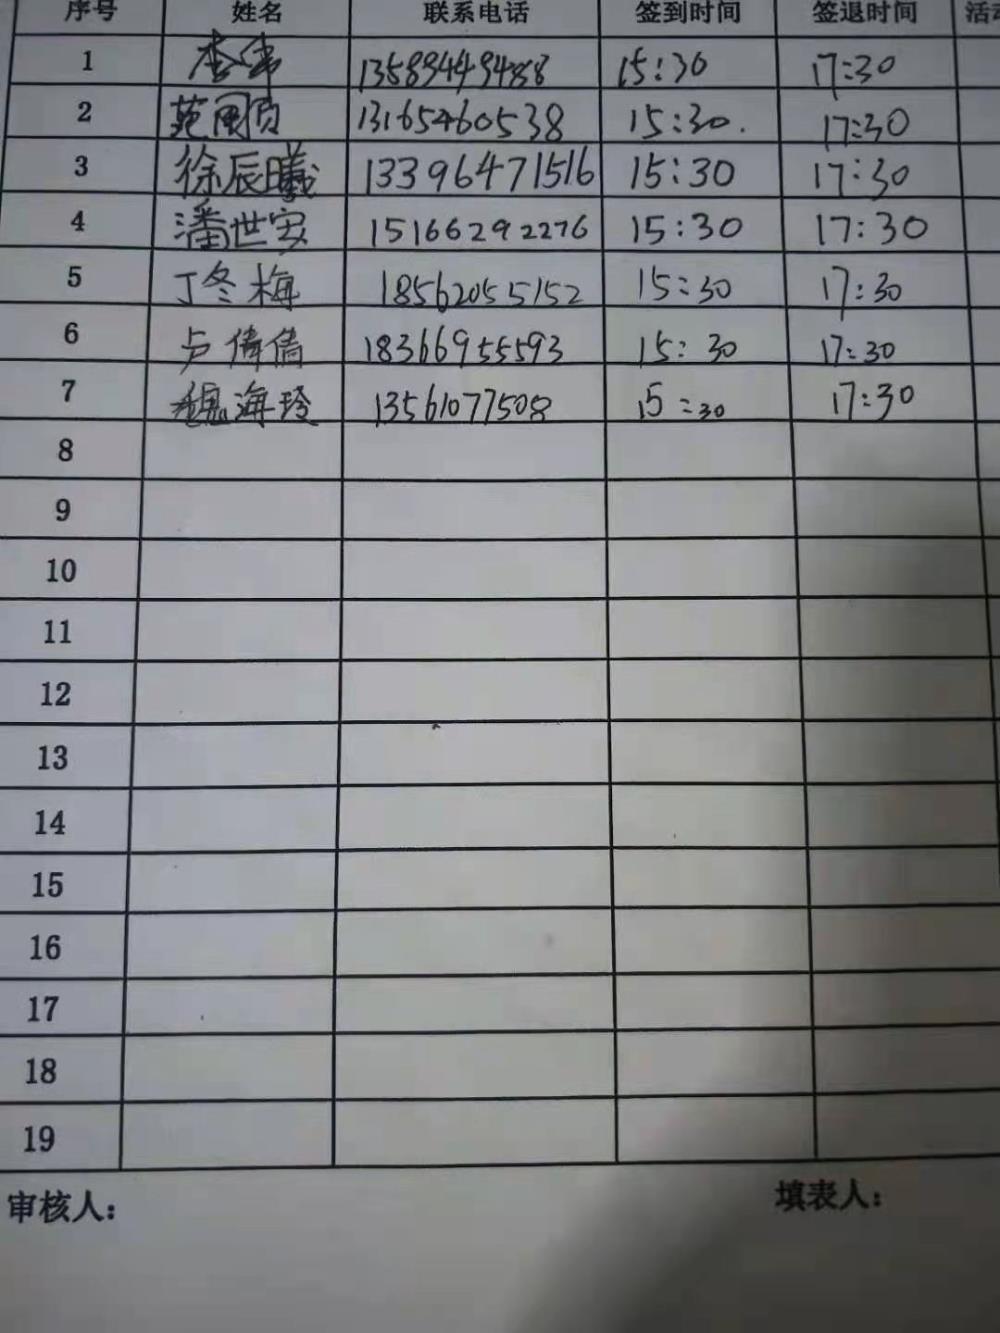 序号 姓名 联系电话 签到时间 签退时间 活动
1 李伟 15:30 17:30
2 13165460538 15:30. 17:30
3 徐辰曦 13396471516 15:30 17:30
4 潘世安 15166292276 15:30 17:30
5 丁冬梅 18562055152 15:30 17:30
6 卢倩倩 18366955593 15:30 17:30
7 魏海玲 13561077508 15:30 17:30
8
9
10
11
12
13
14
15
16
17
18
19
审核人： 填表人：